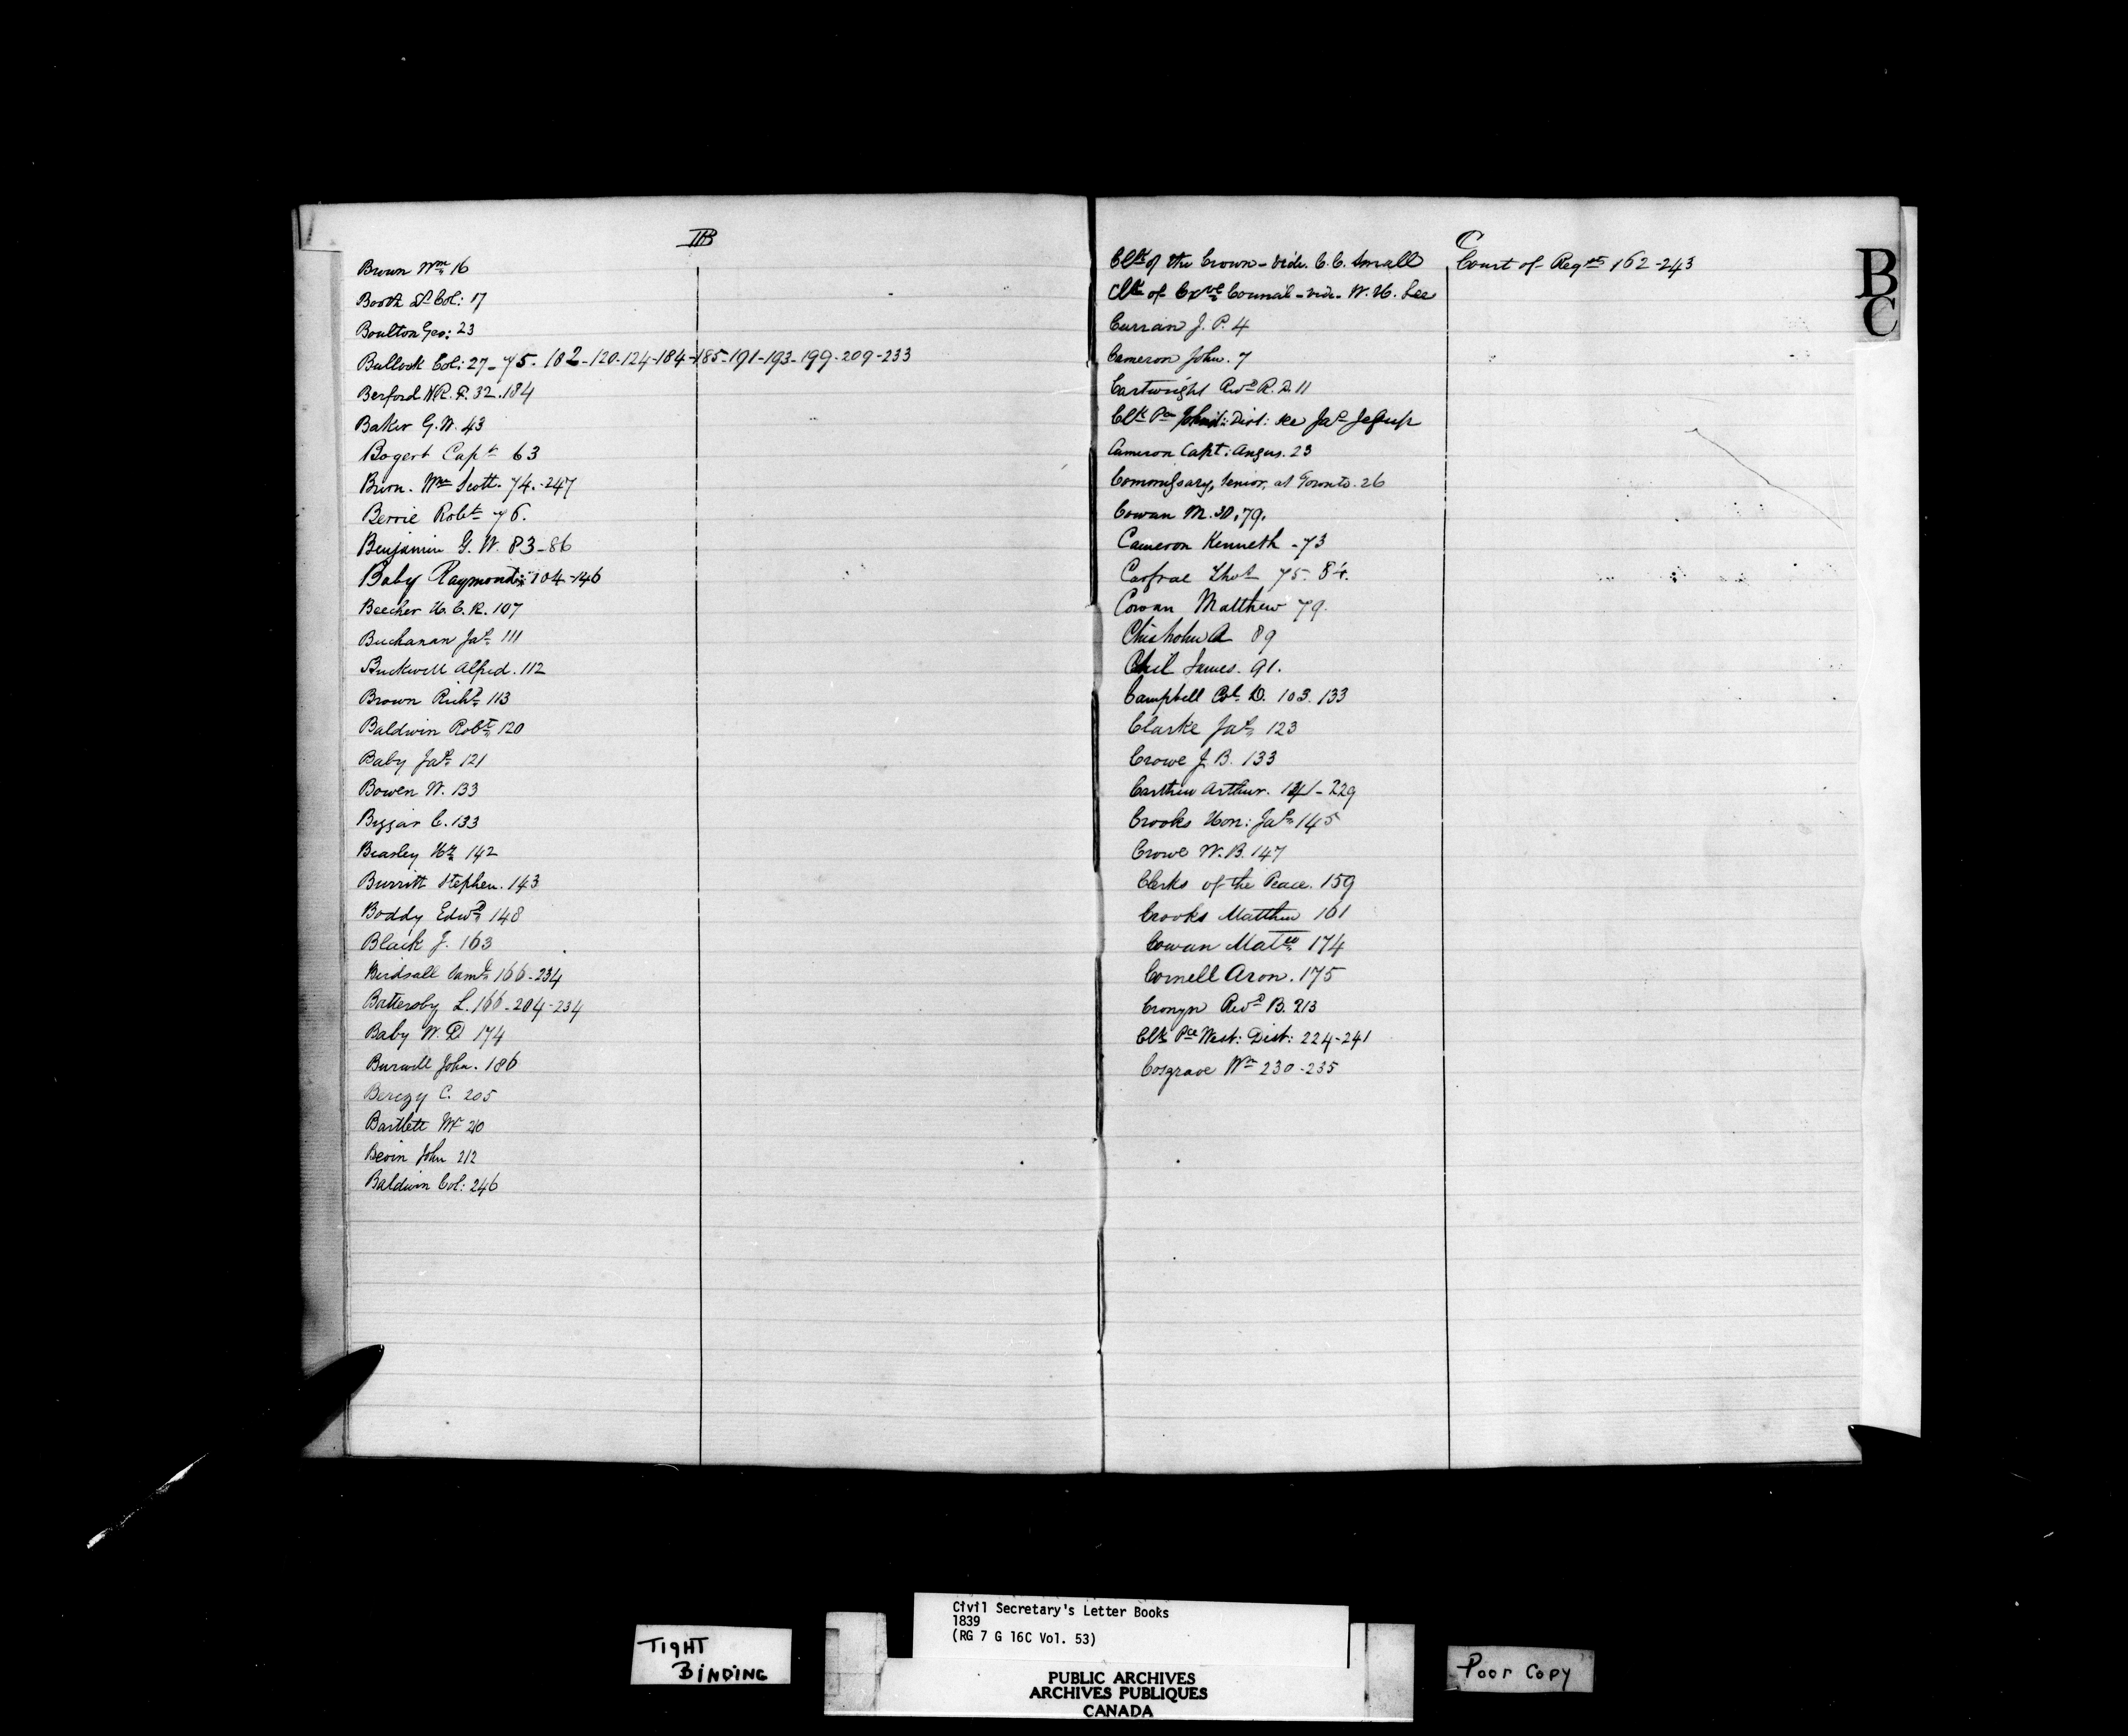 B
Brown Wm 16
Booth Lt Col: 17
Boulton Geo: 23
Bullock Col: 27-75-102-120-124-184-185-191-193-199-209-233
Berford W.R.F. 32.184
Baker G.W. 43
Bogert Capt 63
Brion. Wm Scott. 74.-247
Berrie Robt 76.
Benjamin G.W. 83-86
Baby Raymond: 104-146
Beecher H.C.R. 107
Buchanan Jas 111
Buckwell Alfred. 112
Brown Richd 113
Baldwin Robt 120
Baby Jas 121
Bowen W. 133
Biggar C. 133
Beasley Hy 142
Burritt Stephen. 143
Boddy Edwd 148
Black J. 163
Birdsall Saml 166-234
Battersby L. 166-204-234
Baby W.D. 174
Burwell John. 186
Berczy C. 205
Bartlett Mr 210
Bevin John 212
Baldwin Col: 246
C
Clk of the Crown - vide. C.C. Small
Clk of Exve Council - vide. W.H. Lee
Curran J.P. 4
Cameron John. 7
Cartwright Revd R.D. 11
Clk Pce Johnst: Dist: see Jas Jessup
Cameron Capt: Angus. 23
Commissary, Senior, at Toronto. 26
Cowan M. 30.79.
Cameron Kenneth - 73
Carfrae Thos 75. 84.
Cowan Matthew 79.
Chisholm A 89
James. 91.
Campbell Col D. 103. 133
Clarke Jas 123
Crowe J.B. 133
Carthew Arthur. 141-229
Crooks Hon: Jas 145
Crowe W.B. 147
Clerks of the Peace. 159
Crooks Matthew 161
Cowan Matw 174
Cornell Aron. 175
Cronyn Revd B. 213
Clk Pce West: Dist: 224-241
Cosgrave Wm 230-235
Court of Reqts 162-243
B
C
TIGHT
BINDING
Civil Secretary's Letter Books
1839
(RG 7 G 16C Vol. 53)
PUBLIC ARCHIVES
ARCHIVES PUBLIQUES
CANADA
Poor Copy